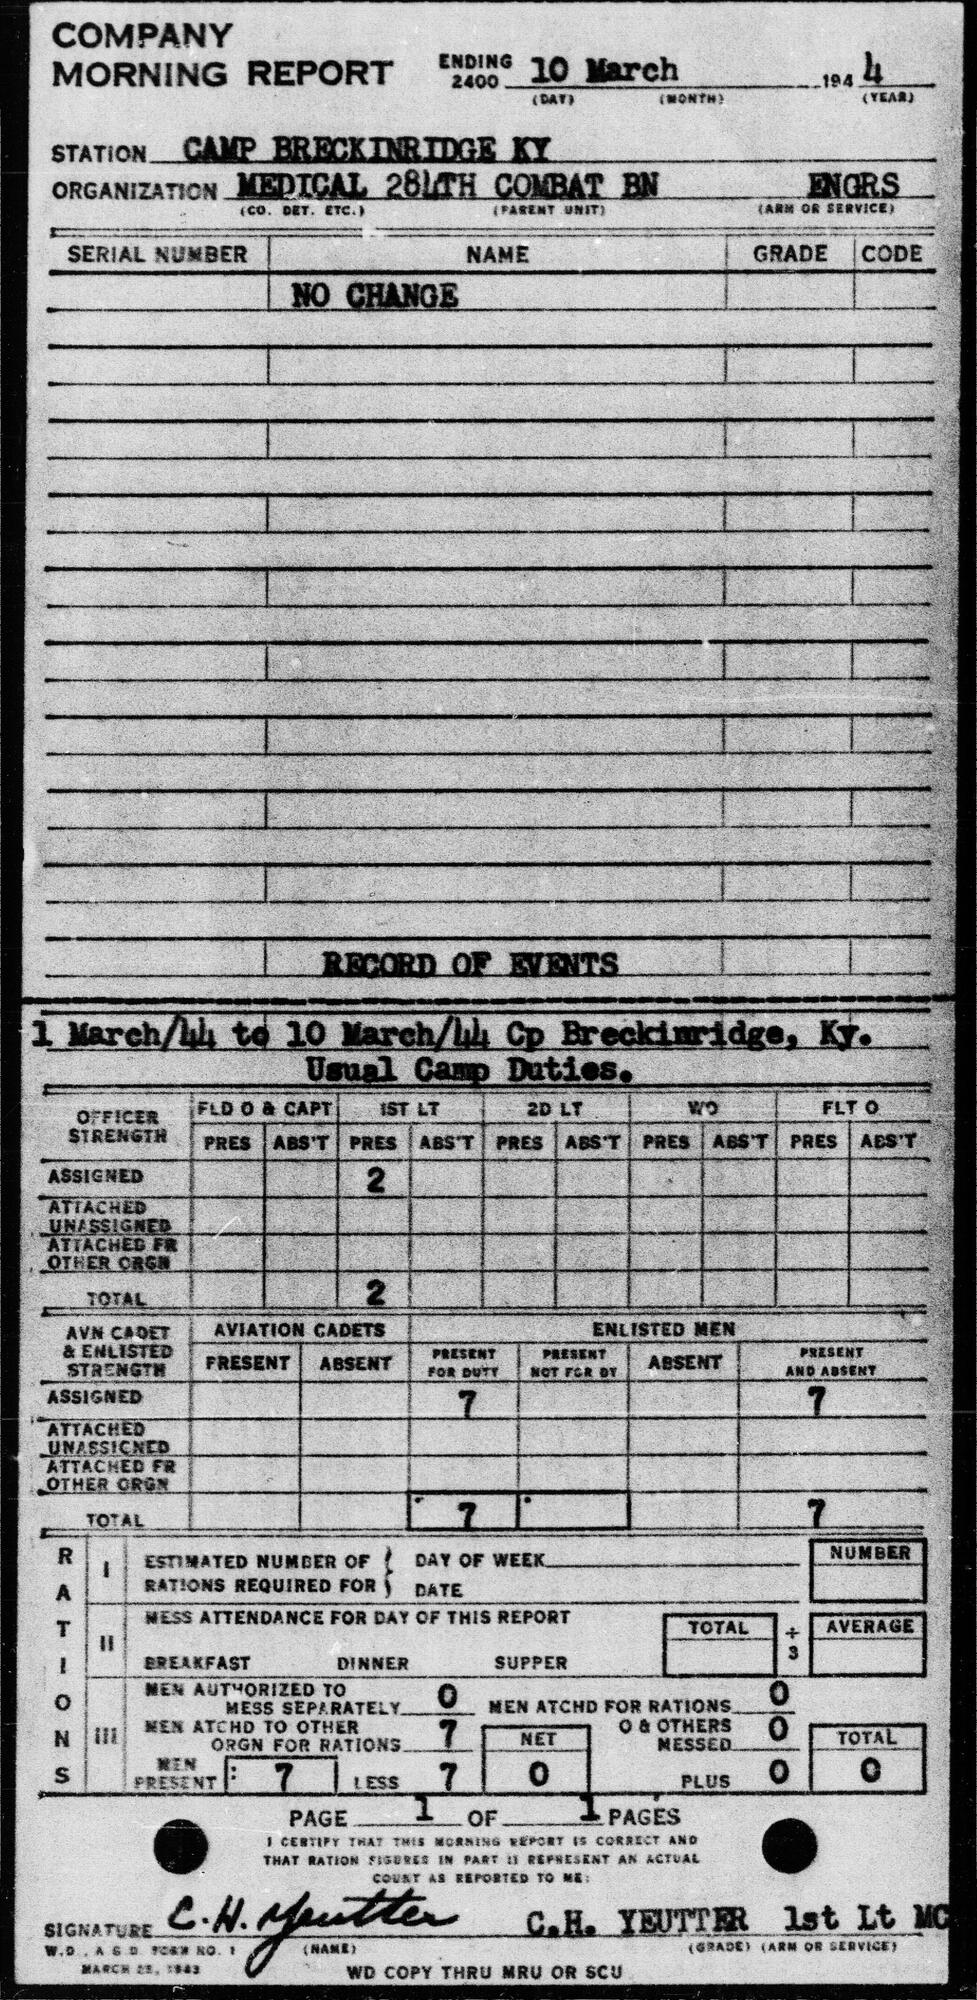 COMPANY
MORNING REPORT ENDING 2400 10 March 194 4
(DAY) (MONTH) (YEAR)
STATION CAMP BRECKINRIDGE KY
ORGANIZATION MEDICAL 284TH COMBAT BN ENGRS
(CO. DET. ETC.) (PARENT UNIT) (ARM OR SERVICE)
SERIAL NUMBER NAME GRADE CODE
NO CHANGE
RECORD OF EVENTS
1 March/44 to 10 March/44 Cp Breckinridge, Ky.
Usual Camp Duties.
OFFICER STRENGTH FLD O & CAPT 1ST LT 2D LT WO FLT O
PRES ABS'T PRES ABS'T PRES ABS'T PRES ABS'T PRES ABS'T
ASSIGNED 2
ATTACHED
UNASSIGNED
ATTACHED FR
OTHER ORGN
TOTAL 2
AVN CADET
& ENLISTED
STRENGTH
AVIATION CADETS ENLISTED MEN
PRESENT ABSENT PRESENT FOR DUTY PRESENT NOT FOR DY ABSENT PRESENT AND ABSENT
ASSIGNED 7 7
ATTACHED
UNASSIGNED
ATTACHED FR
OTHER ORGN
TOTAL 7 7
RATIONS
I ESTIMATED NUMBER OF DAY OF WEEK NUMBER
RATIONS REQUIRED FOR DATE
II MESS ATTENDANCE FOR DAY OF THIS REPORT TOTAL ÷ 3 AVERAGE
BREAKFAST DINNER SUPPER
III MEN AUTHORIZED TO
MESS SEPARATELY 0 MEN ATCHD FOR RATIONS 0
MEN ATCHD TO OTHER
ORGN FOR RATIONS 7 NET O & OTHERS MESSED 0 TOTAL
MEN PRESENT : 7 LESS 7 0 PLUS 0 0
PAGE 1 OF 1 PAGES
I CERTIFY THAT THIS MORNING REPORT IS CORRECT AND
THAT RATION FIGURES IN PART II REPRESENT AN ACTUAL
COUNT AS REPORTED TO ME:
SIGNATURE C. H. Yeutter C.H. YEUTTER 1st Lt MC
W.D., A.G.D. FORM NO. 1 (NAME) (GRADE) (ARM OR SERVICE)
MARCH 25, 1943
WD COPY THRU MRU OR SCU